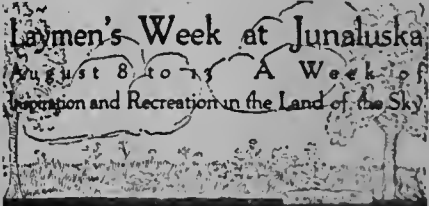 Laymen's Week at Junaluska
August 8 to 15 A Week of
Inspiration and Recreation in the Land of the Sky